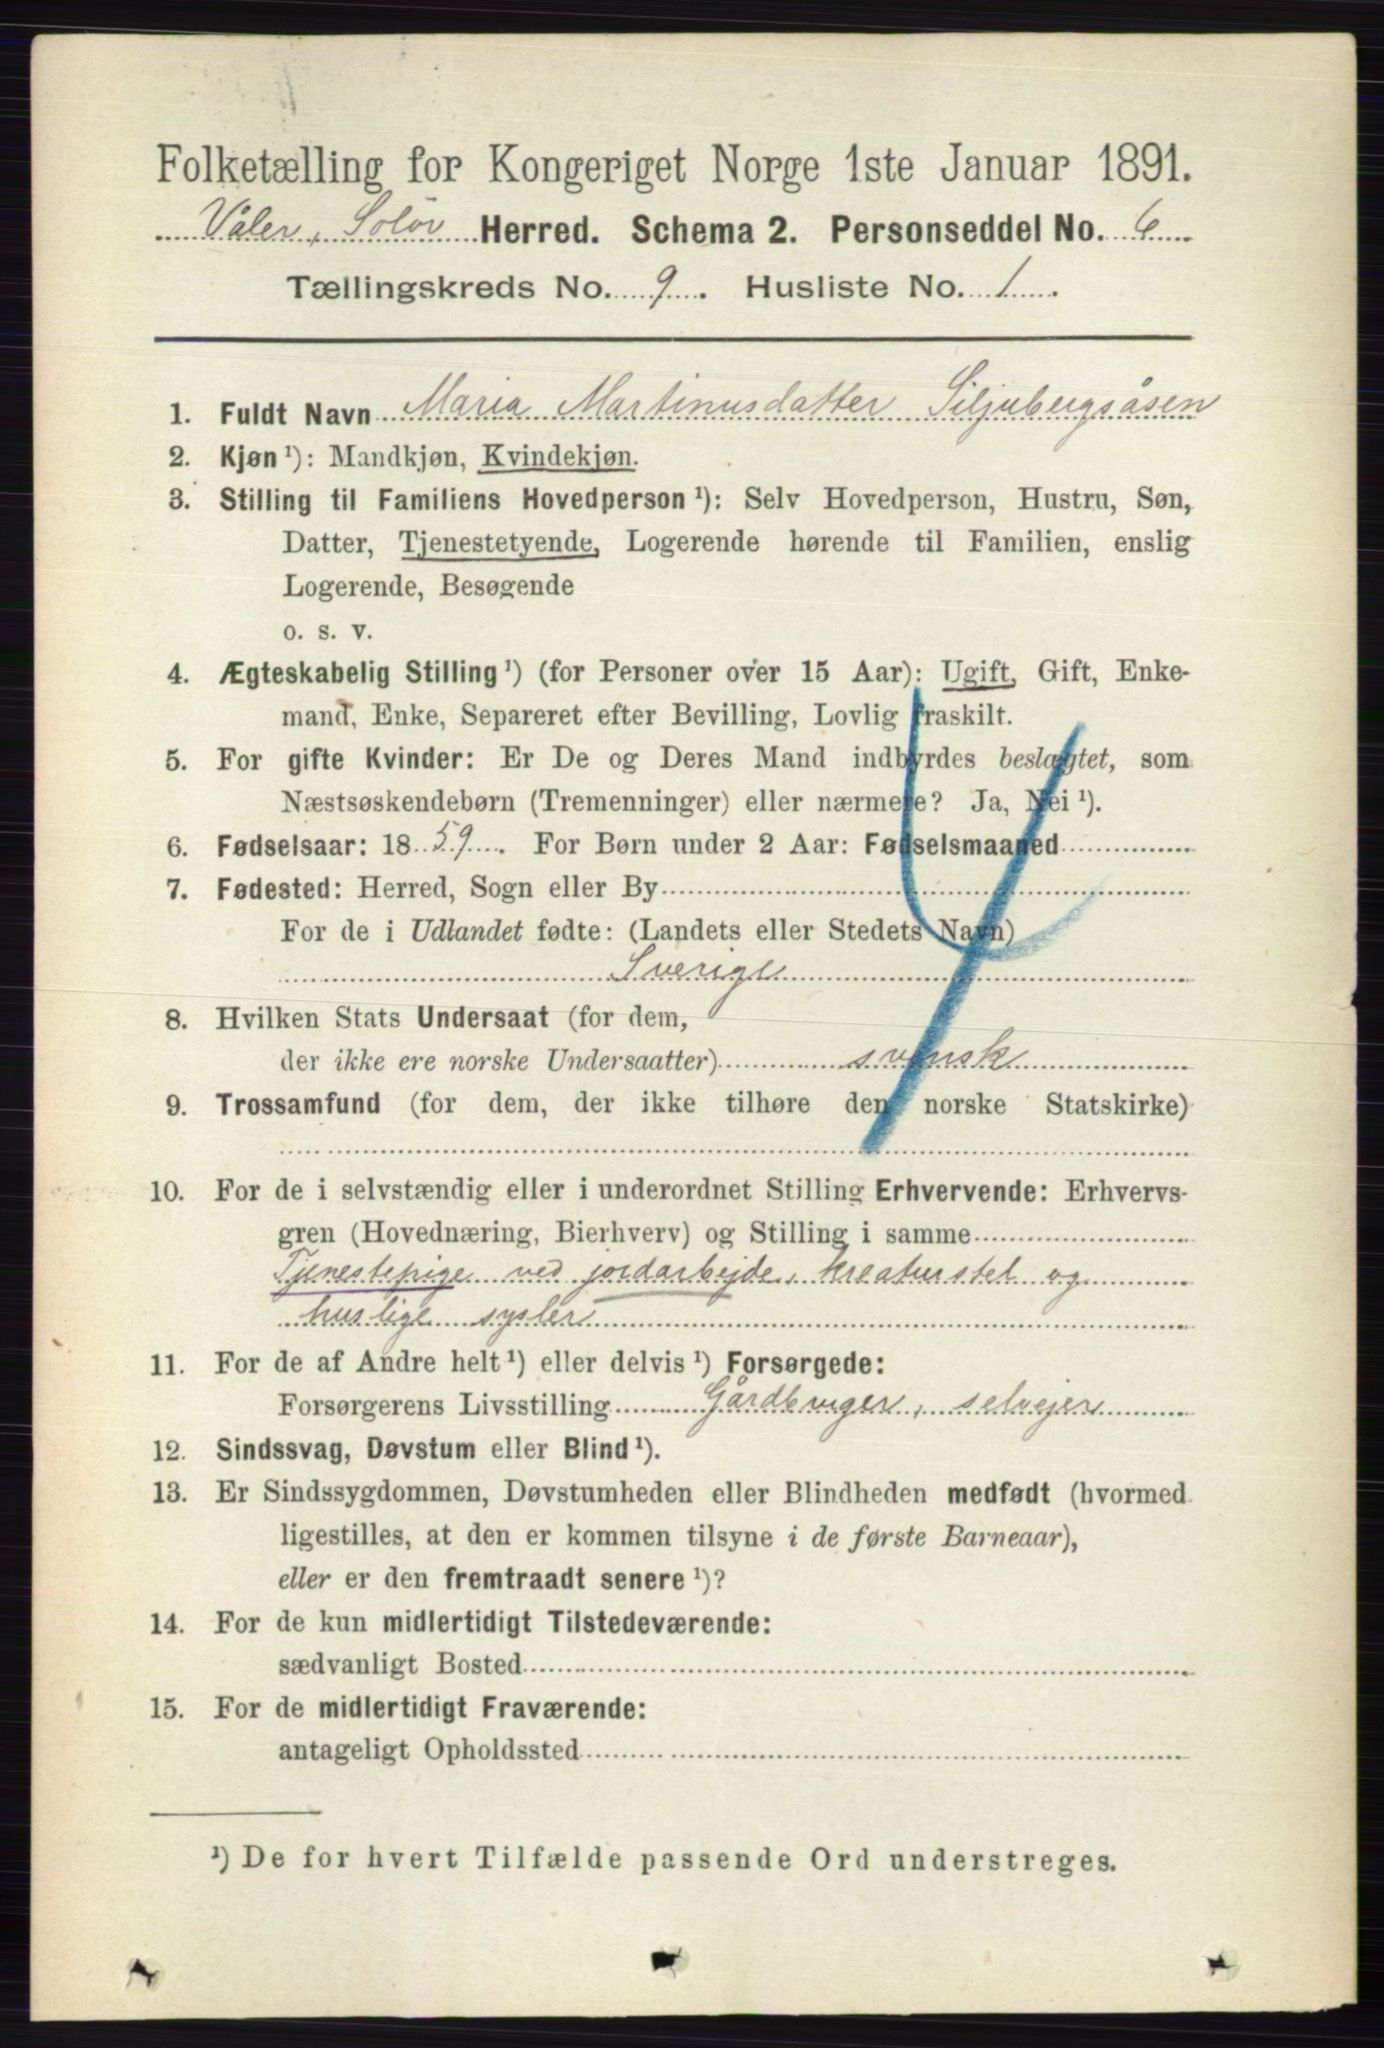 Folketælling for Kongeriget Norge 1ste Januar 1891.
Våler, Solör Herred. Schema 2. Personseddel No. 6
Tællingskreds No. 9. Husliste No. 1.
1. Fuldt Navn Maria Martinusdatter Siljubergsåsen
2. Kjøn ¹): Mandkjøn, Kvindekjøn.
3. Stilling til Familiens Hovedperson ¹): Selv Hovedperson, Hustru, Søn,
Datter, Tjenestetyende, Logerende hørende til Familien, enslig
Logerende, Besøgende
o. s. v.
4. Ægteskabelig Stilling ¹) (for Personer over 15 Aar): Ugift, Gift, Enke-
mand, Enke, Separeret efter Bevilling, Lovlig fraskilt.
5. For gifte Kvinder: Er De og Deres Mand indbyrdes beslægtet, som
Næstsøskendebørn (Tremenninger) eller nærmere? Ja, Nei ¹).
6. Fødselsaar: 1859. For Børn under 2 Aar: Fødselsmaaned
7. Fødested: Herred, Sogn eller By
For de i Udlandet fødte: (Landets eller Stedets Navn)
Sverige
8. Hvilken Stats Undersaat (for dem,
der ikke ere norske Undersaatter) svensk
9. Trossamfund (for dem, der ikke tilhøre den norske Statskirke)
10. For de i selvstændig eller i underordnet Stilling Erhvervende: Erhvervs-
gren (Hovednæring, Bierhverv) og Stilling i samme
Tjenestepige ved jordarbejde, kreaturstel og
huslige sysler
11. For de af Andre helt ¹) eller delvis ¹) Forsørgede:
Forsørgerens Livsstilling Gårdbruger, selvejer
12. Sindssvag, Døvstum eller Blind ¹).
13. Er Sindssygdommen, Døvstumheden eller Blindheden medfødt (hvormed
ligestilles, at den er kommen tilsyne i de første Barneaar),
eller er den fremtraadt senere ¹)?
14. For de kun midlertidigt Tilstedeværende:
sædvanligt Bosted
15. For de midlertidigt Fraværende:
antageligt Opholdssted
¹) De for hvert Tilfælde passende Ord understreges.